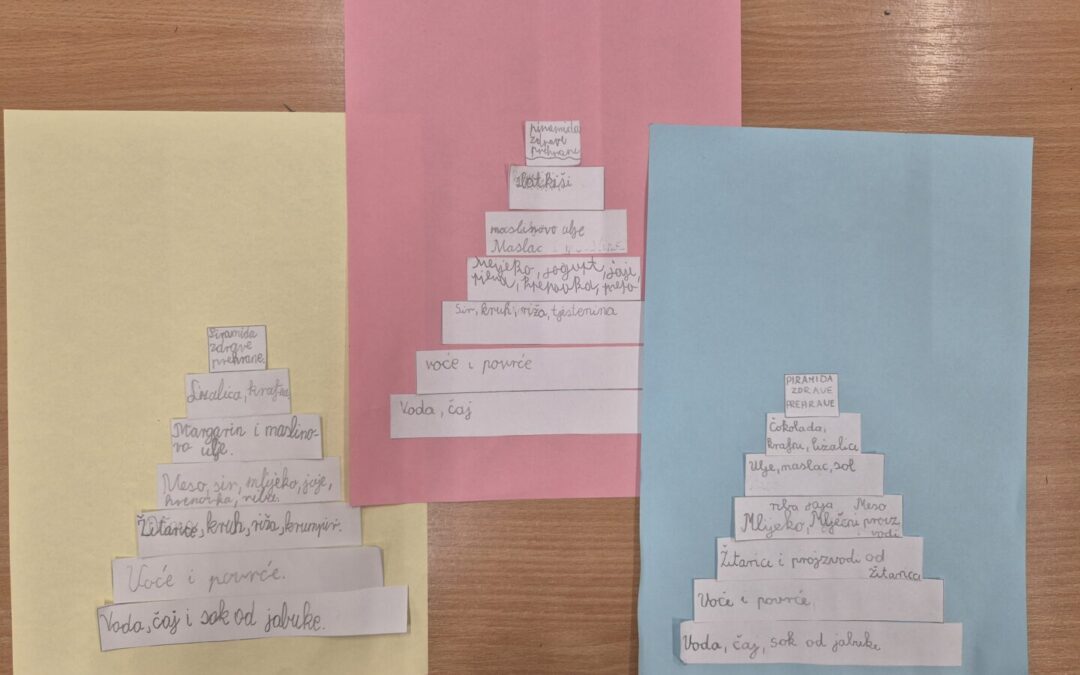 Piramida
zdrave
prehrane.
Lizalica, krafna
Margarin i maslino-
vo ulje.
Meso, sir, mlijeko, jaje,
hrenovka, riba.
Žitarice, kruh, riža, krumpir.
Voće i povrće.
Voda, čaj i sok od jabuke.
piramida
zdrave
prehrane
slatkiši
maslinovo ulje
Maslac
Mlijeko, jogurt, jaje,
hrenovka,
Sir, kruh, riža, tjestenina
voće i povrće
Voda, čaj
PIRAMIDA
ZDRAVE
PREHRANE
Čokolada,
krafne, lizalice
Ulje, maslac, sol
riba jaja Meso
Mlijeko, Mlječni proiz
vodi
Žitarice i projzvodi od
žitarica
Voće i povrće,
Voda, čaj, sok od jabuke